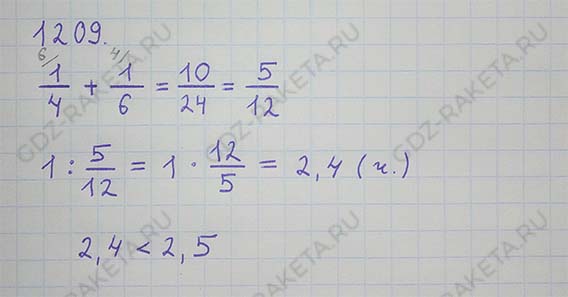 1209.
6/ 4/
1/4 + 1/6 = 10/24 = 5/12
1 : 5/12 = 1 · 12/5 = 2,4 (ч.)
2,4 < 2,5
GDZ-RAKETA.RU
GDZ-RAKETA.RU
GDZ-RAKETA.RU
GDZ-RAKETA.RU
GDZ-RAKETA.RU
GDZ-RAKETA.RU